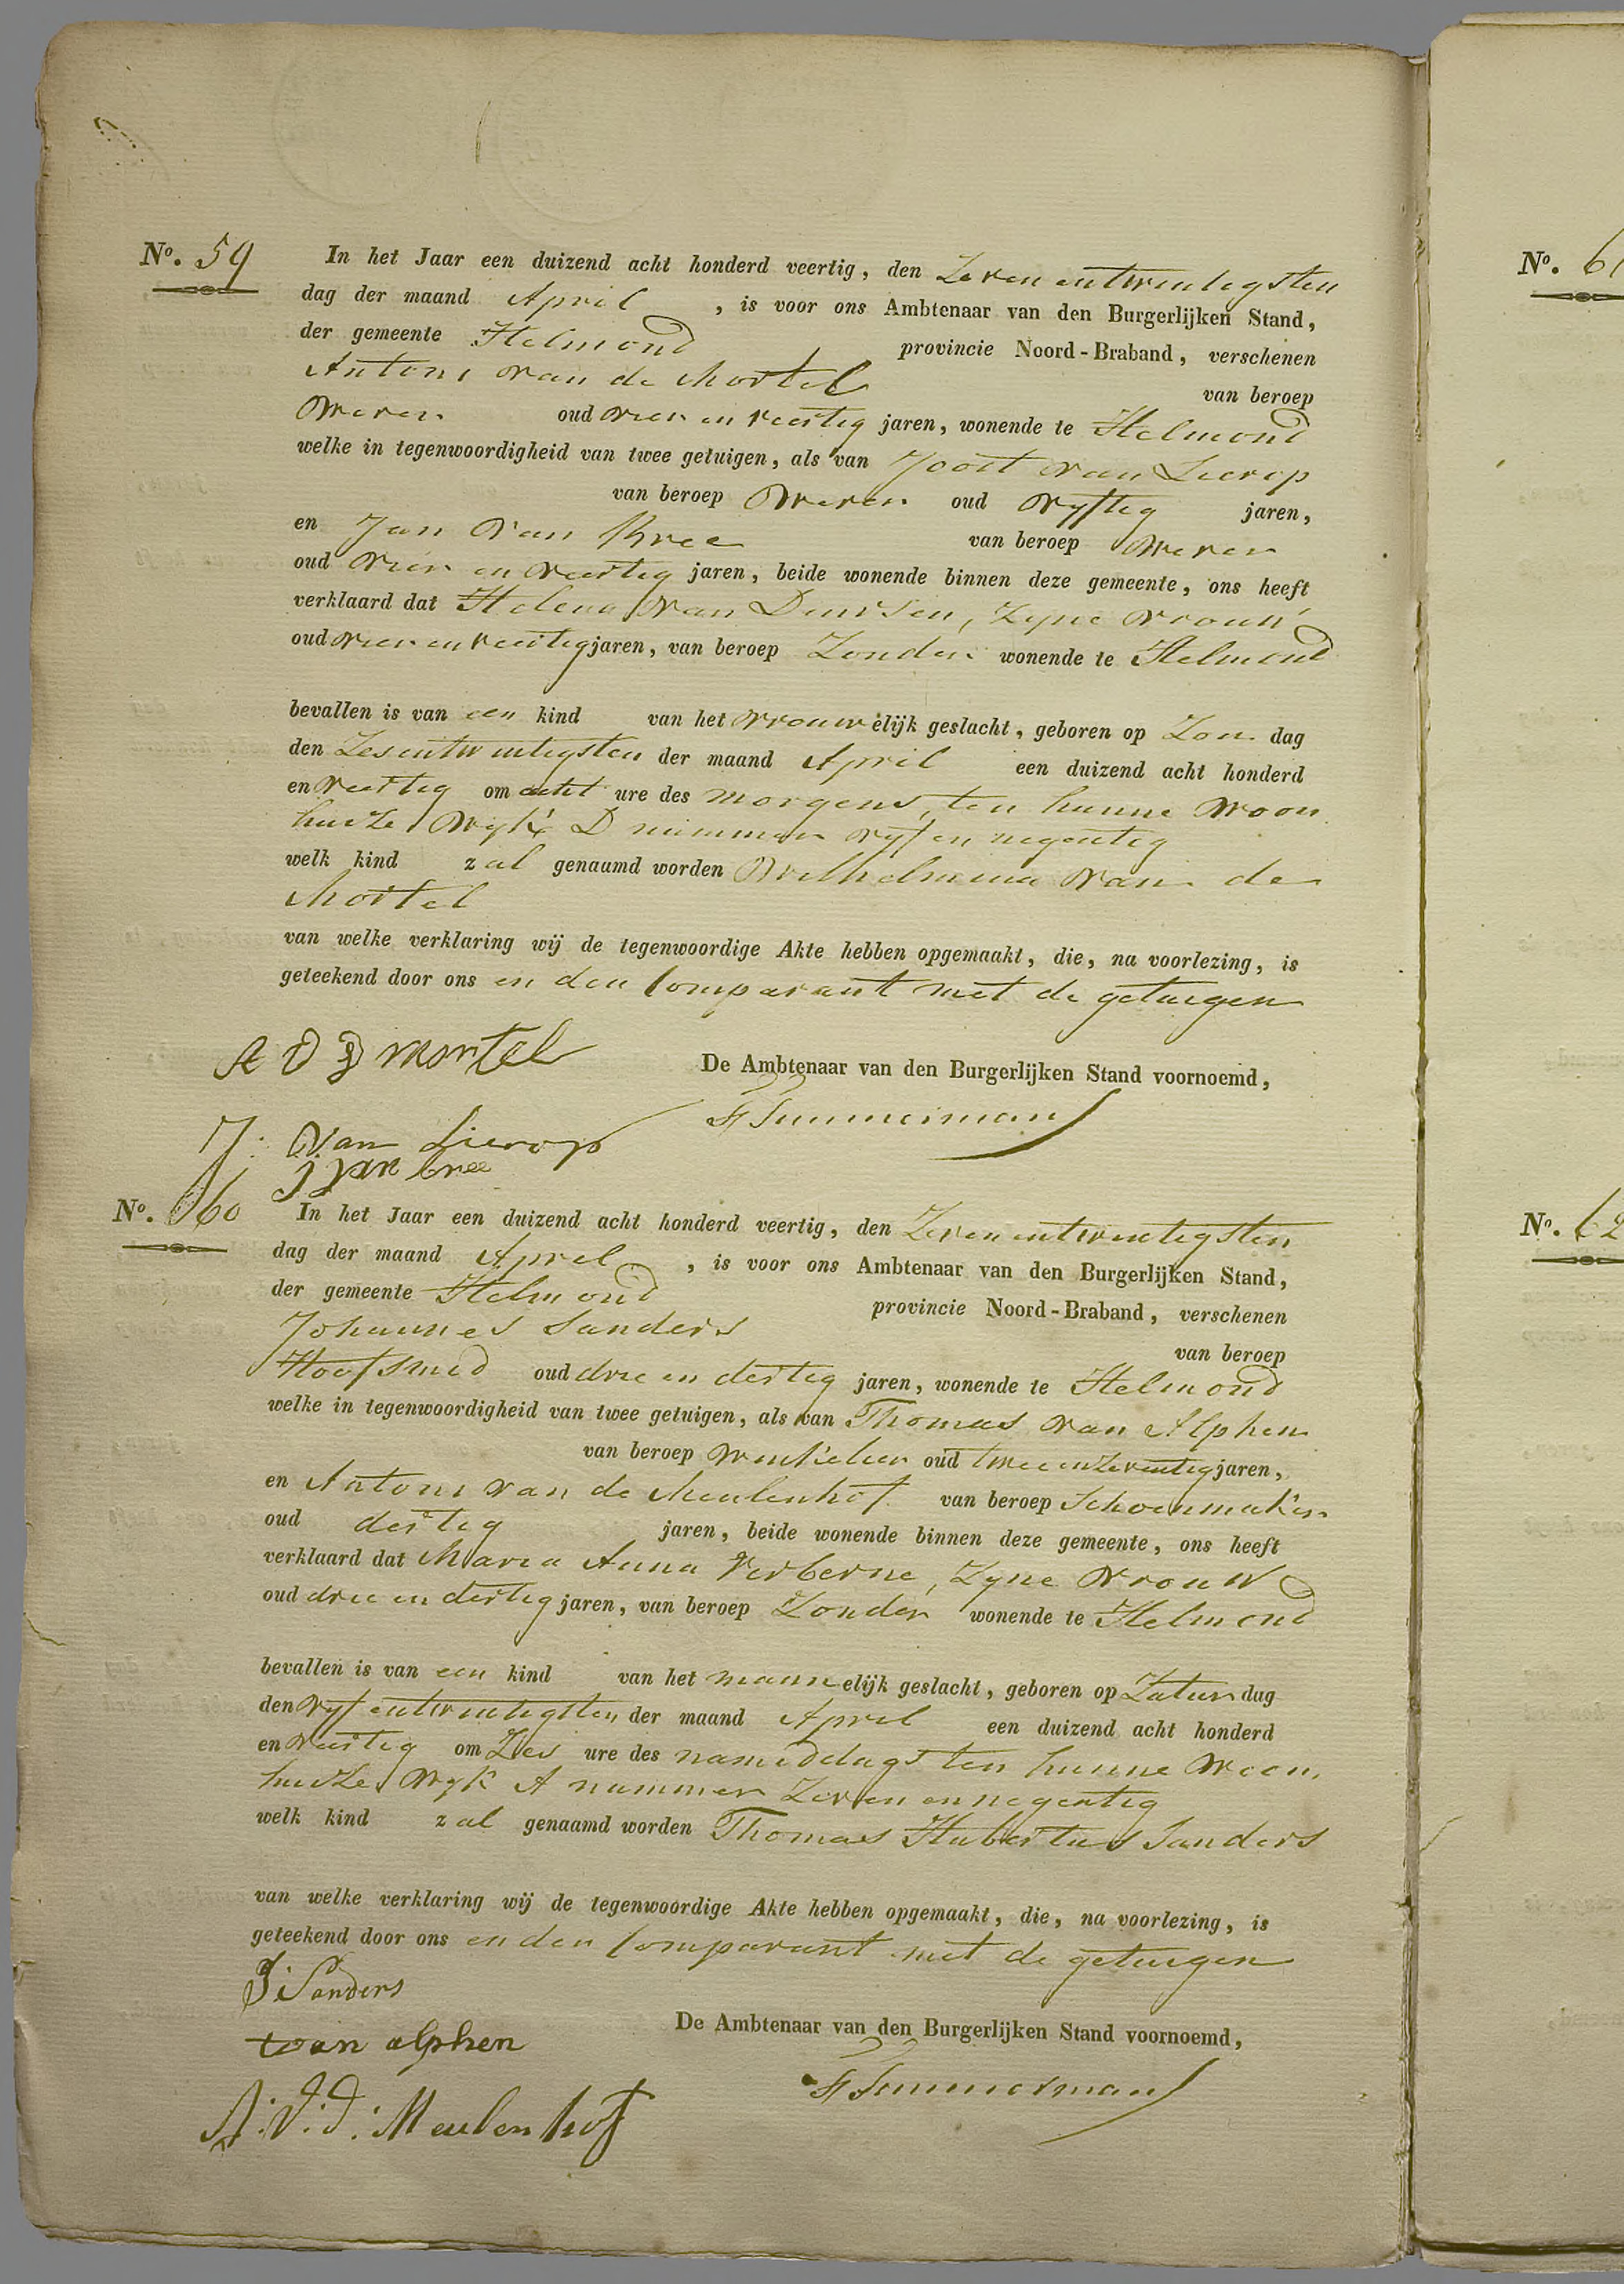 No. 59
In het Jaar een duizend acht honderd veertig, den Zeven entwintigsten
dag der maand April , is voor ons Ambtenaar van den Burgerlijken Stand,
der gemeente Helmond provincie Noord-Braband, verschenen
Antoni van de Mortel van beroep
Wever oud vier en veertig jaren, wonende te Helmond
welke in tegenwoordigheid van twee getuigen, als van Joost van Lierop
van beroep Wever oud vyftig jaren,
en Jan van Bree van beroep Wever
oud vier en veertig jaren, beide wonende binnen deze gemeente, ons heeft
verklaard dat Helena van Deursen, Zyne vrouw
oud vier en veertig jaren, van beroep Zonder wonende te Helmond
bevallen is van een kind van het vrouwelijk geslacht, geboren op Zondag
den Zesentwintigsten der maand April een duizend acht honderd
en veertig om acht ure des morgens, ten hunne woon
huize Wyk D nummer vyf en negentig
welk kind zal genaamd worden Wilhelmina van de
Mortel
van welke verklaring wij de tegenwoordige Akte hebben opgemaakt, die, na voorlezing, is
geteekend door ons en den Comparant met de getuigen
A v d mortel
De Ambtenaar van den Burgerlijken Stand voornoemd,
J: van Lierop
j van bree
No. 60
In het Jaar een duizend acht honderd veertig, den Zeven entwintigsten
dag der maand April , is voor ons Ambtenaar van den Burgerlijken Stand,
der gemeente Helmond provincie Noord-Braband, verschenen
Johannes Sanders van beroep
Hoefsmid oud drie en dertig jaren, wonende te Helmond
welke in tegenwoordigheid van twee getuigen, als van Thomas van Alphen
van beroep Winkelier oud twee en zeventig jaren,
en Antoni van de Meulenhof van beroep Schoenmaker
oud dertig jaren, beide wonende binnen deze gemeente, ons heeft
verklaard dat Maria Anna Verberne, Zyne vrouw
oud drie en dertig jaren, van beroep Zonder wonende te Helmond
bevallen is van een kind van het mannelijk geslacht, geboren op Zaturdag
den vyf entwintigsten der maand April een duizend acht honderd
en veertig om Zes ure des namiddags ten hunne woon
huize Wyk A nummer Zeven en negentig
welk kind zal genaamd worden Thomas Hubertus Sanders
van welke verklaring wij de tegenwoordige Akte hebben opgemaakt, die, na voorlezing, is
geteekend door ons en den Comparant met de getuigen
J: Sanders
De Ambtenaar van den Burgerlijken Stand voornoemd,
t van alphen
A: V: d: Meulenhof
No. 61
No. 62